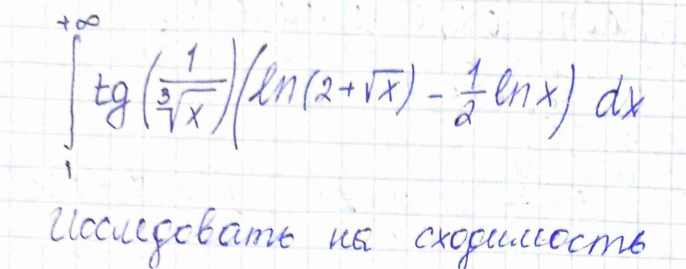 +∞
∫ tg(1/∛x)(ln(2+√x) - 1/2 ln x) dx
1
Исследовать на сходимость